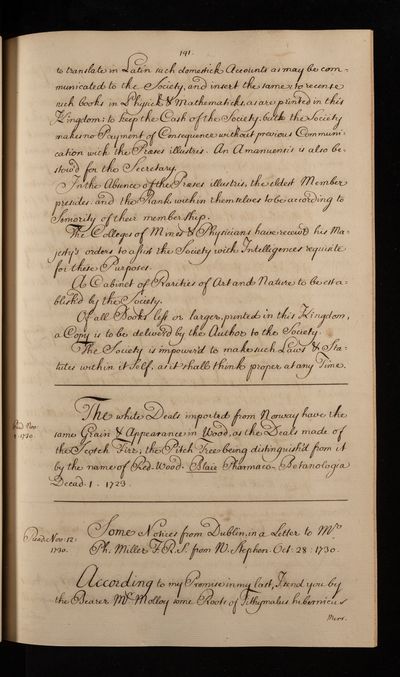 191.
to translate in Latin such domestick Accounts as may be com-
municated to the Society, and insert the same: to recense
such books in Physick & Mathematicks, as are printed in this
Kingdom: to keep the Cash of the Society: but the Society
makes no Payment of Consequence without previous Communi-
cation with the Præses illustris. An Amanuensis is also be-
stow'd for the Secretary.
In the Absence of the Præses illustris, the eldest Member
presides: and the Rank within themselves to be according to
Seniority of their membership.
The Colleges of Mines & Physicians have receiv'd his Ma-
jesty's orders to assist the Society with Intelligences requisite
for these Purposes.
A Cabinet of Rarities of Art and Nature to be esta-
blish'd by the Society.
Of all Books less or larger, printed in this Kingdom,
a Copy is to be deliver'd by the Author to the Society.
The Society is impower'd to make such Laws & Sta-
tutes within it Self, as it shall think proper at any Time.
Read Nov:
1730
The white Deals imported from Norway have the
same Grain & Appearance in Wood, as the Deals made of
the Scotch Firr; the Pitch Tree being distinguish'd from it
by the name of Red-Wood. Blair Pharmaco-Botanologia
Decad. 1. 1723.
Read Nov: 12:
1730.
Some Notices from Dublin, in a Letter to Mr.
Ph. Miller F.R.S. from W. Stephen. Oct: 28: 1730.
According to my Promise in my last, I send you by
the Bearer Mr. Molloy some Roots of Tithymalus hibernicus